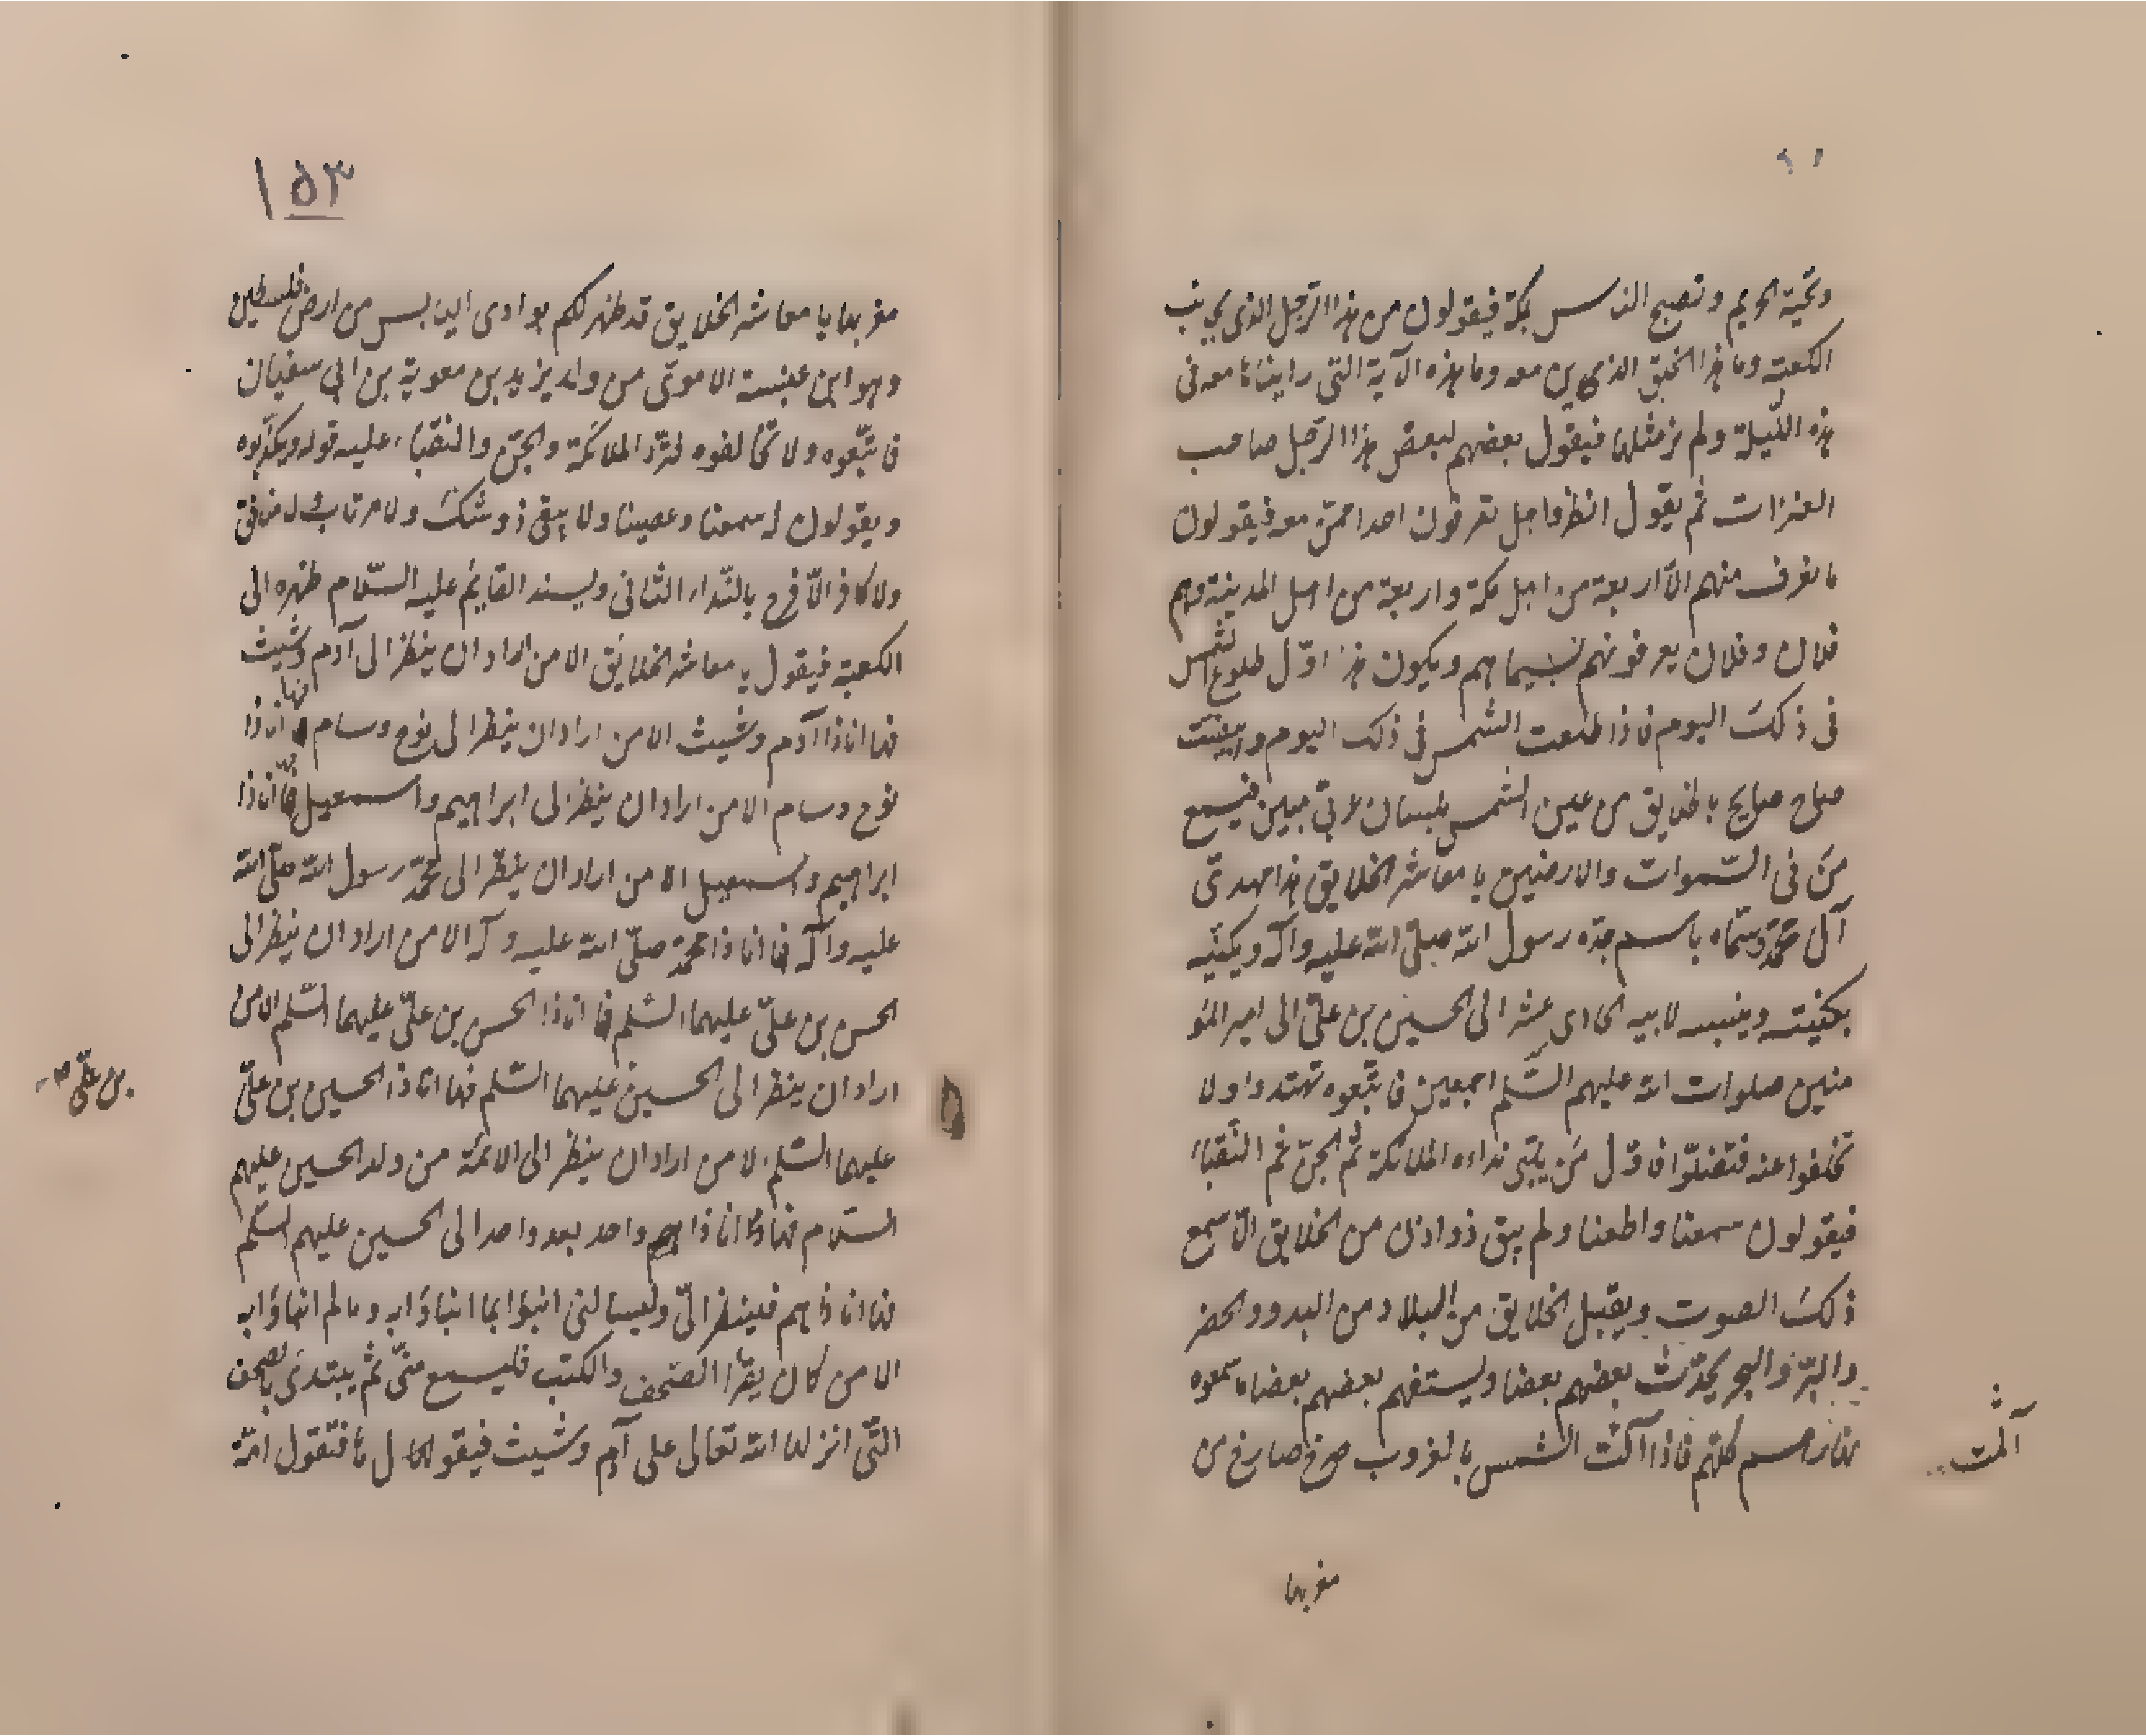 وتحية الحريم وتصبح الناس بمكة فيقولون من هذا الرجل الذي بجانب
الكعبة وما هذا الخلق الذي من معه وما هذه الآية التي رايناها معه في
هذه الليلة ولم نر مثلها فيقول بعضهم لبعض هذا الرجل صاحب
العنزات ثم يقول انظروا هل تعرفون احدا ممن معه فيقولون
ما نعرف منهم الا اربعة من اهل مكة واربعة من اهل المدينة وهم
فلان وفلان يعرفونهم بسيماهم ويكون هذا اول طلوع الشمس
في ذلك اليوم فاذا طلعت الشمس في ذلك اليوم وابيضت
صاح صايح بالخلايق من عين الشمس بلسان عربي مبين فيسمع
من في السموات والارضين يا معاشر الخلايق هذا مهدي
آل محمد وسماه باسم جده رسول الله صلى الله عليه وآله ويكنيه
بكنيته وينسبه لابيه الحادي عشر الى الحسين بن علي الى امير المؤ
منين صلوات الله عليهم السلم اجمعين فاتبعوه تهتدوا ولا
تخلفوا عنه فتضلوا فاول من يلبي نداءه الملائكة ثم الجن ثم النقباء
فيقولون سمعنا واطعنا ولم يبق ذو اذن من الخلايق الا سمع
ذلك الصوت ويقبل الخلايق من البلاد من البدو والحضر
والبر والبحر يحدث بعضهم بعضا ويستفهم بعضهم بعضا ما سمعوه
نهارهم كلهم فاذا اكثت الشمس بالغروب صرخ صارخ من
مغربها
١٥٣
مغربها يا معاشر الخلايق قد ظهر لكم بوادي اليابس من ارض فلسطين
وهو ابن عنبسة الاموي من ولد يزيد بن معوية بن ابي سفيان
فاتبعوه ولا تخالفوه فترد الملائكة والجن والنقباء عليه قوله ويكذبوه
ويقولون له سمعنا وعصينا ولا يبقى ذو شك ولا مرتاب ولا منافق
ولا كافر الا فرح بالنداء الثاني ويسند القايم عليه السلام ظهره الى
الكعبة فيقول يا معاشر الخلايق الا من اراد ان ينظر الى آدم وشيث
فها انا ذا آدم وشيث الا من اراد ان ينظر الى نوح وسام فها انا ذا
نوح وسام الا من اراد ان ينظر الى ابراهيم واسمعيل فها انا ذا
ابراهيم واسمعيل الا من اراد ان ينظر الى محمد رسول الله صلى الله
عليه وآله فها انا ذا محمد صلى الله عليه وآله الا من اراد ان ينظر الى
الحسن بن علي عليهما السلم فها انا ذا الحسن بن علي عليهما السلم الا من
اراد ان ينظر الى الحسين عليهما السلم فها انا ذا الحسين بن علي
بن علي
عليهما السلم الا من اراد ان ينظر الى الائمة من ولد الحسين عليهم
السلام فها انا ذا هم واحد بعد واحد الى الحسين عليهم السلم
فها انا ذا هم فلينظر الي وليسالني انبؤا بما انباؤا به وما لم انباؤا به
الا من كان يقرا الصحف والكتب فليسمع مني ثم يبتدئ بالصحف
التي انزلها الله تعالى على آدم وشيث فيقول فتقول امة